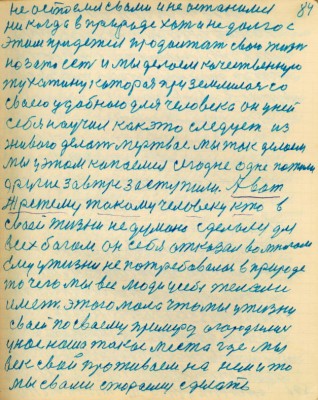 84
не остоемся вами и не останимся
никогда в природе хотя не долго с
этим придется продолжать свою жизнь
но зато сети и мы делаем качественную
тухатину которая приземлилася со
своего удобного для человека он у ней
себя научил как это следует из
живого делать мертвае мы так делаем
мы у этом капаемся сегодне одне потом
другие завтре заступили. А вот
третему такому человеку кто в
своей жизни не думано сделалы для
всех богом он себя отказал во многом
ему у жизни не потребовалось в природе
то чего мы все люди у себя желали
иметь этого мала что мы у жизни
своей по своему примеру огородились
у нас наша такое места где мы
век свой проживаем на нем и то
мы с вами стораемся сделать